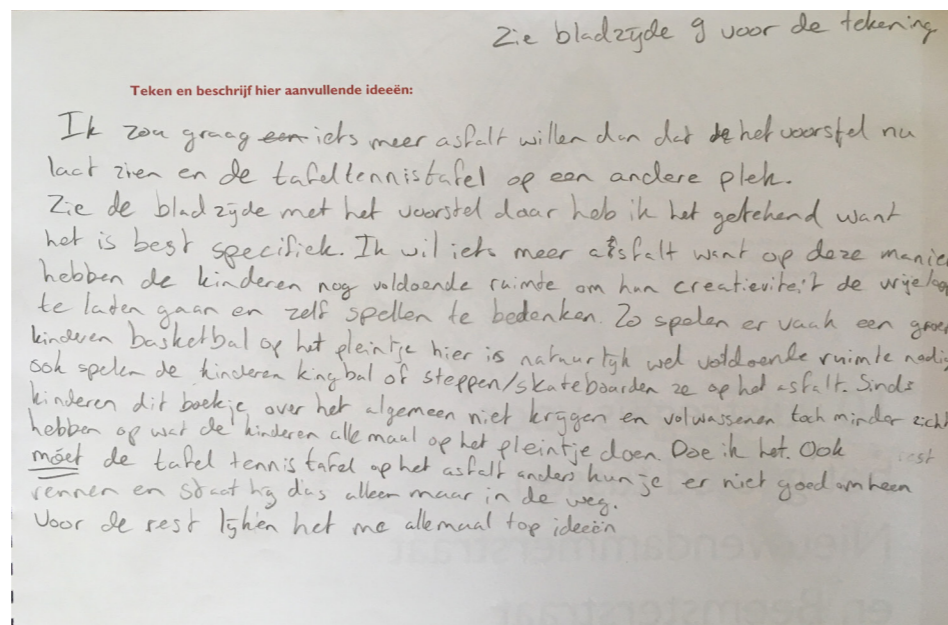 Zie bladzijde 9 voor de tekening
Teken en beschrijf hier aanvullende ideeën:
Ik zou graag een iets meer asfalt willen dan dat de het voorstel nu
laat zien en de tafeltennistafel op een andere plek.
Zie de bladzijde met het voorstel daar heb ik het getekend want
het is best specifiek. Ik wil iets meer asfalt want op deze manier
hebben de kinderen nog voldoende ruimte om hun creatieviteit de vrije loop
te laten gaan en zelf spellen te bedenken. Zo spelen er vaak een groep
kinderen basketbal op het pleintje hier is natuurlijk wel voldoende ruimte nodig
ook spelen de kinderen kingbal of steppen/skateboarden ze op het asfalt. Sinds
kinderen dit boekje over het algemeen niet krijgen en volwassenen toch minder zicht
hebben op wat de kinderen allemaal op het pleintje doen Doe ik het. Ook
móet de tafel tennis tafel op het asfalt anders kun je er niet goed omheen
rennen en staat hij dus alleen maar in de weg.
Voor de rest lijken het me allemaal top ideeën